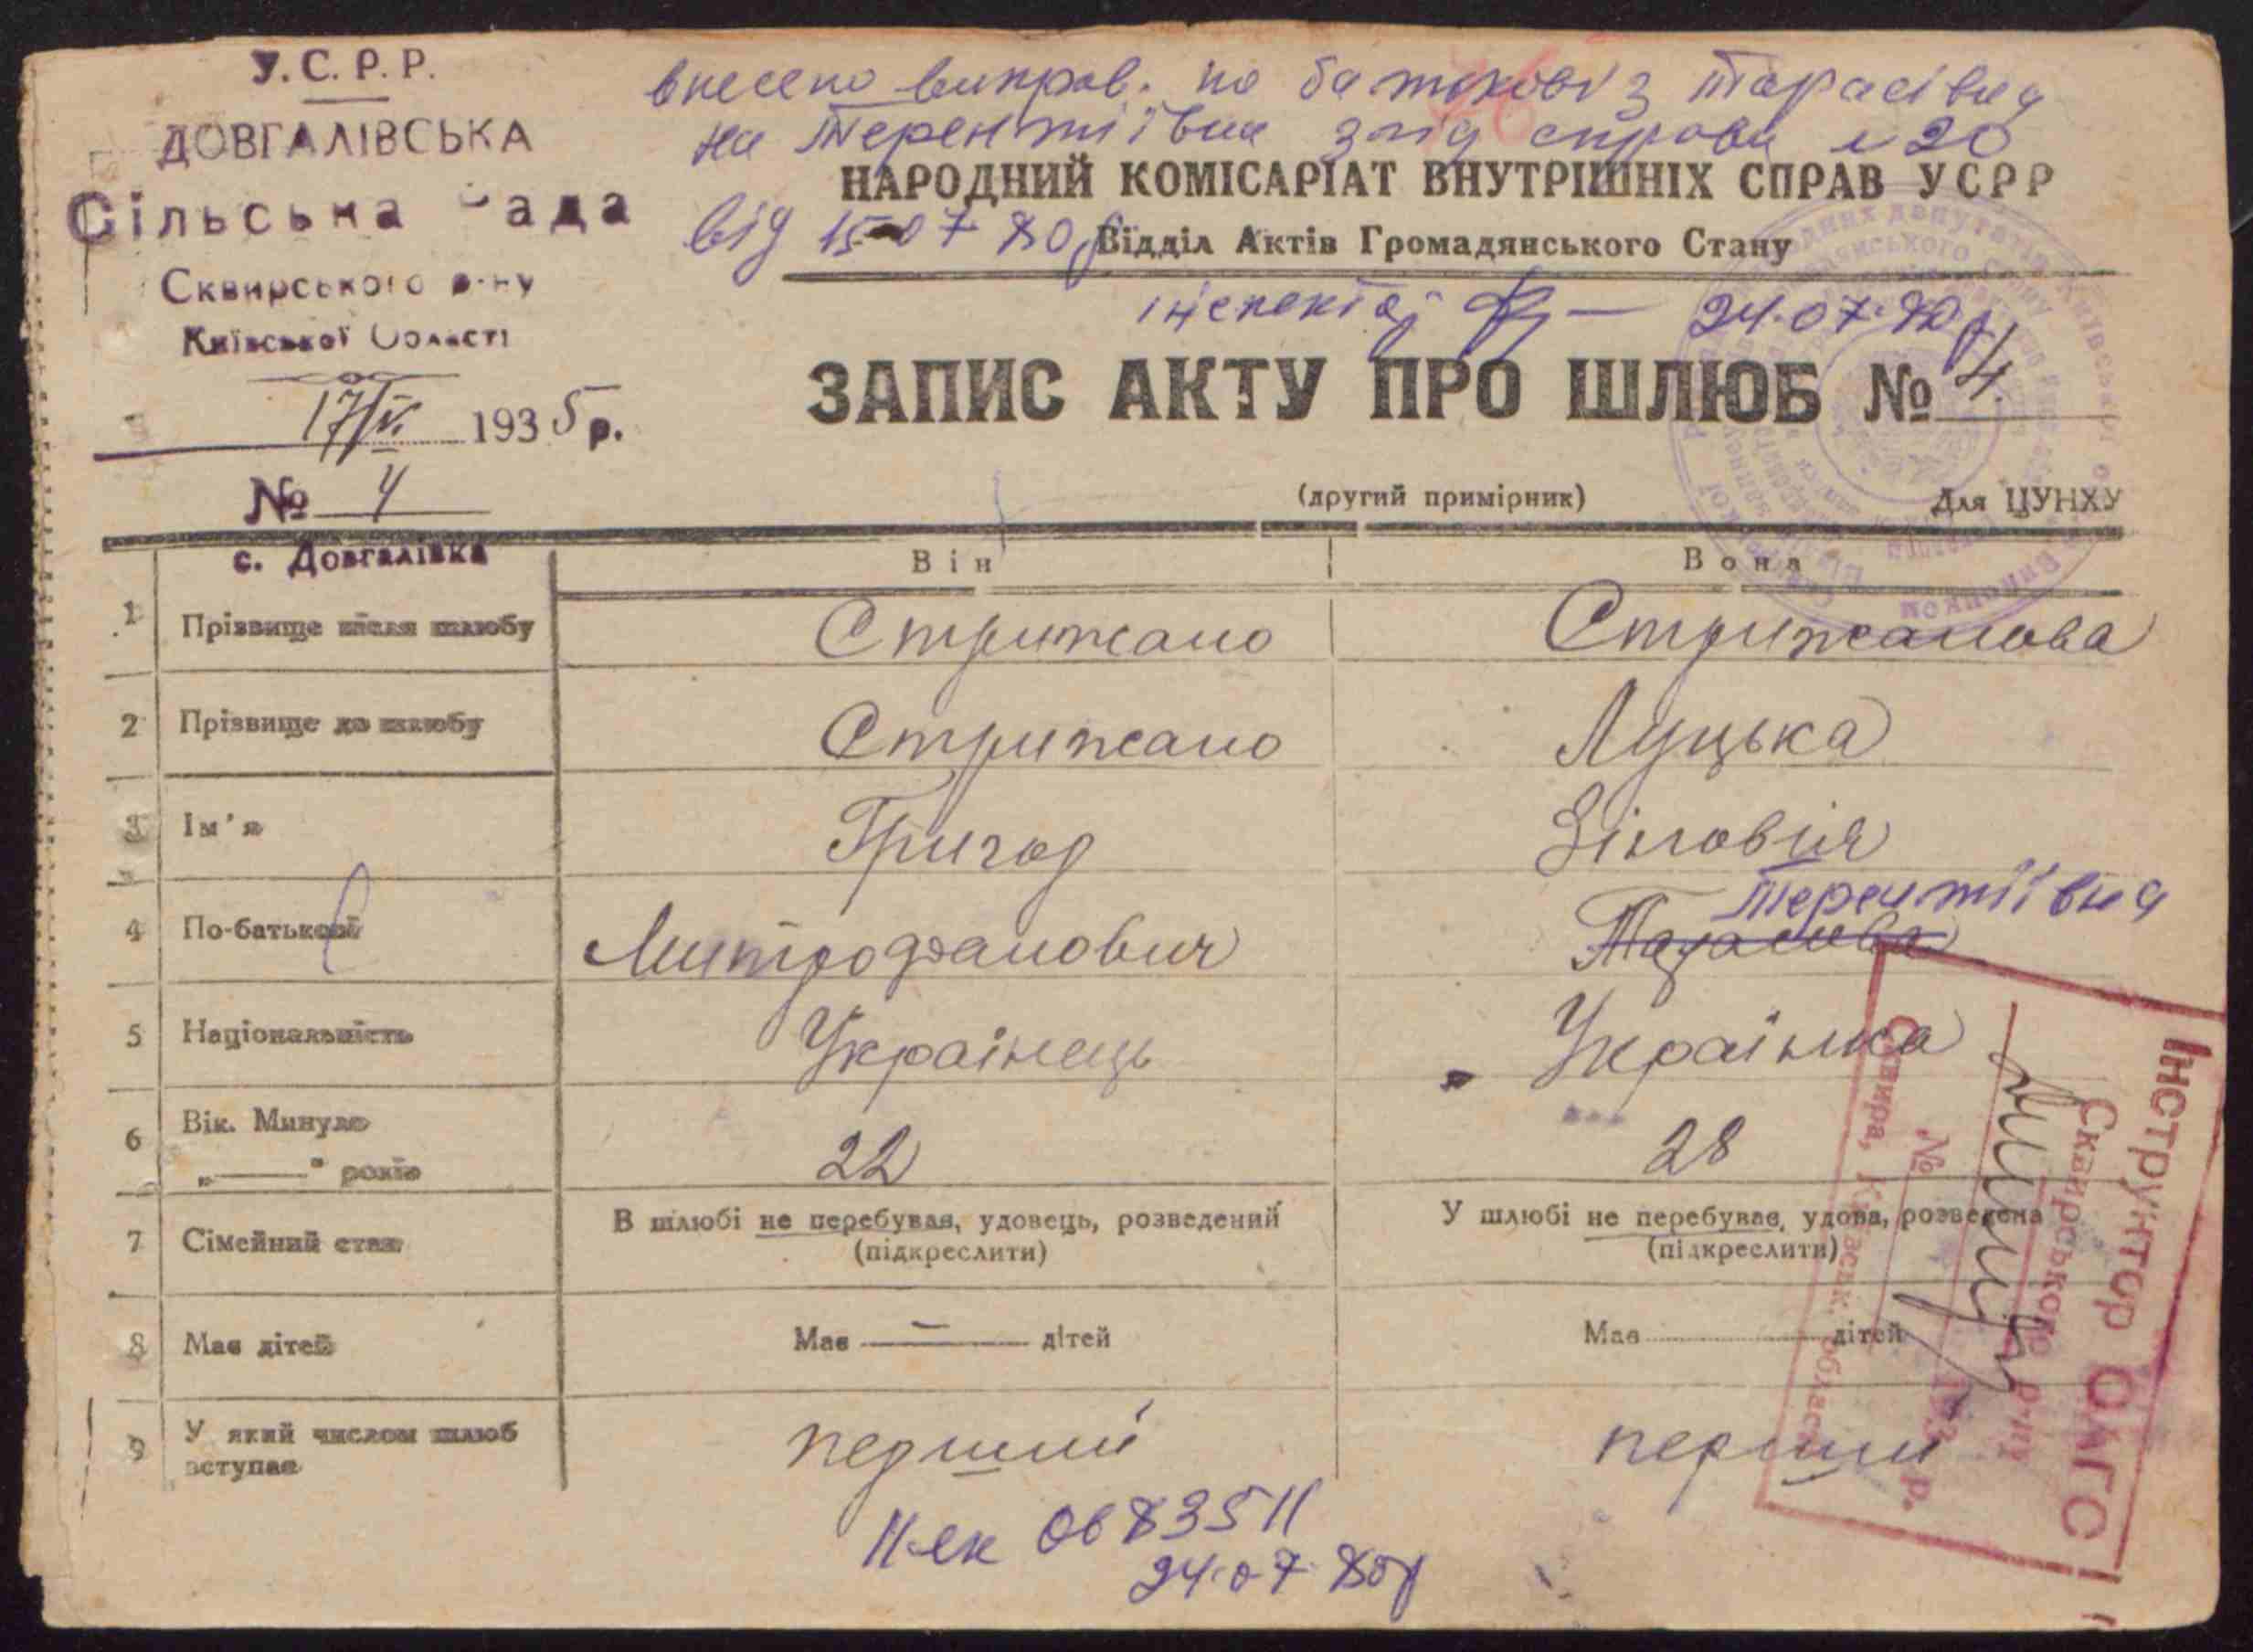 У.С.Р.Р.
ДОВГАЛІВСЬКА
Сільська Рада
Сквирського р-ну
Київської Області
17/IV 1935 р.
№ 4
с. Довгалівка
внесено виправ. по батькові з Тарасівна
на Терентіївна згід справи № 20
від 15-07 80р
НАРОДНИЙ КОМІСАРІАТ ВНУТРІШНІХ СПРАВ УСРР
Відділ Актів Громадянського Стану
інспектор 24.07.80р
ЗАПИС АКТУ ПРО ШЛЮБ № 4.
(другий примірник) Для ЦУНХУ
Він Вона
1 Прізвище після шлюбу Стрижало Стрижалова
2 Прізвище до шлюбу Стрижало Луцька
3 Ім'я Григор Зіновія
Терентіївна
4 По-батькові Митрофанович Тарасова
5 Національність Українець Українка
6 Вік. Минуло 22 28
„———" років
7 Сімейний стан В шлюбі не перебував, удовець, розведений У шлюбі не перебував, удова, розведена
(підкреслити) (підкреслити)
8 Має дітей Має — дітей Має дітей
9 У який числом шлюб перший перший
вступає
ІІ-ек 0683511
24.07.80р
Інструктор ОАГС
Сквирського р-ну
№ 193 р.
Сквира, Київськ. област